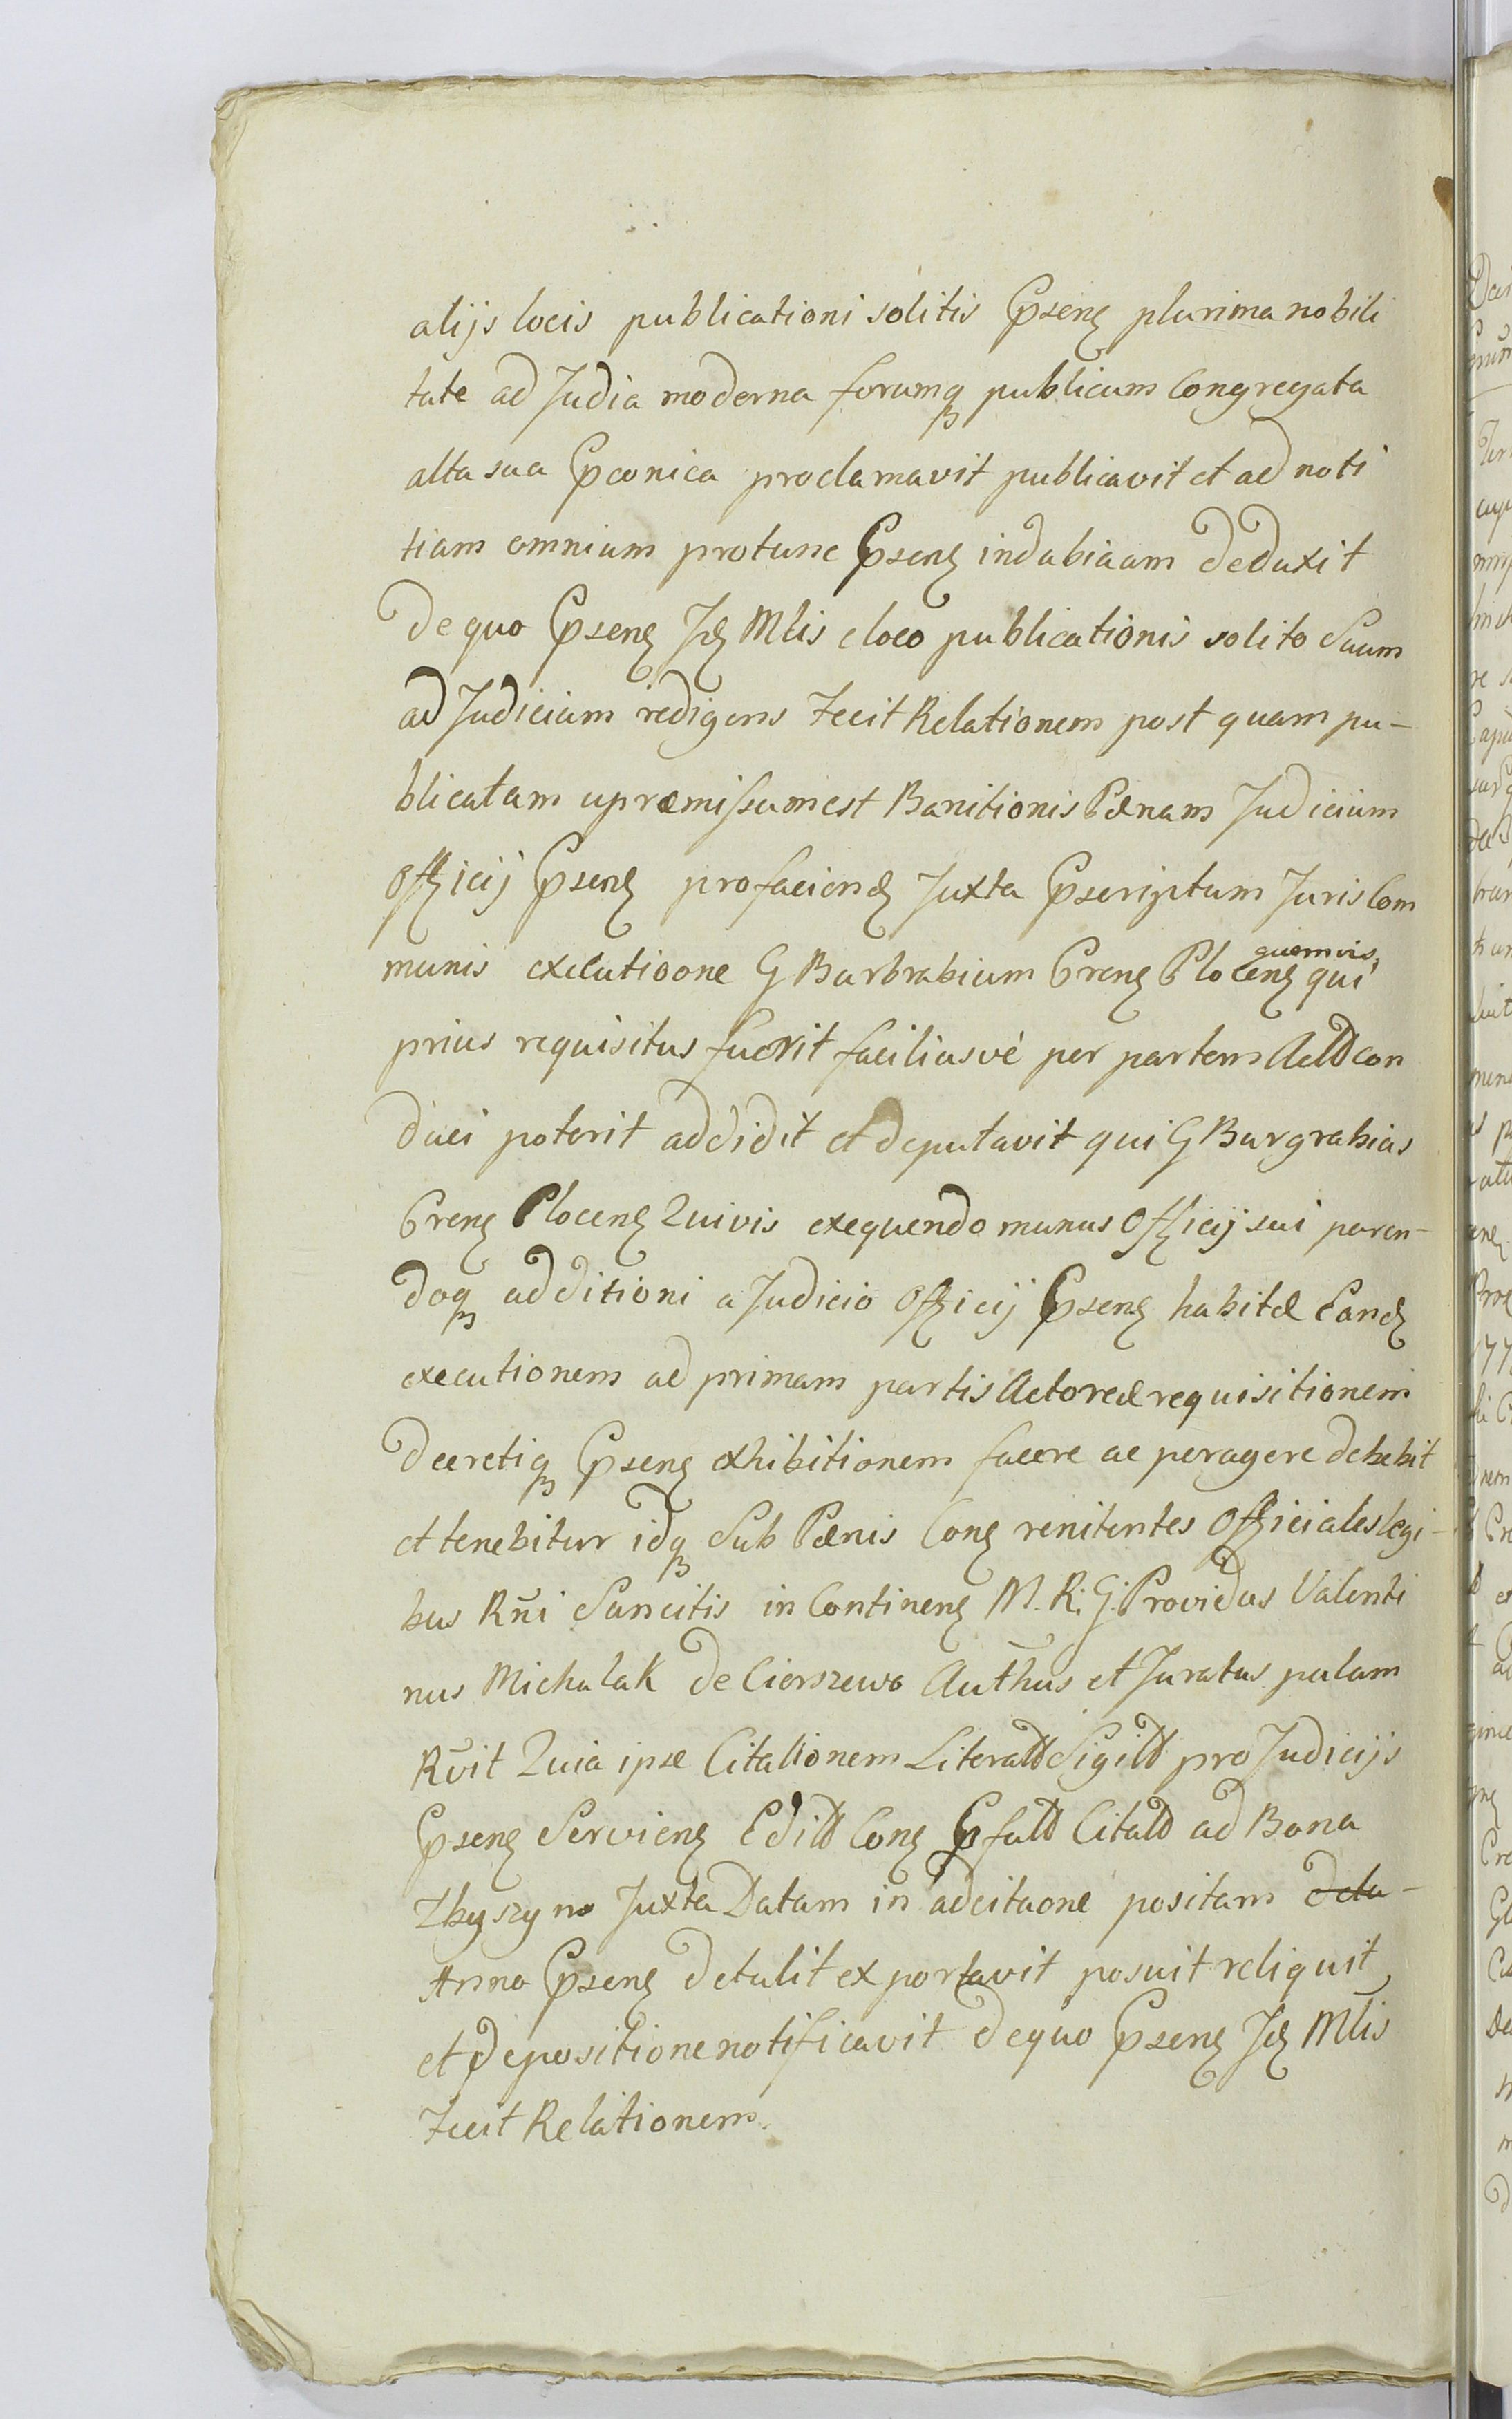 alijs locis publicationi solitis Pseng plurima nobili
tate ad Judia moderna forumq publicum Congregata
alta sua Pconica proclamavit publicavit et ad noti
tiam omnium protunc Pseng indubiaam deduxit
De quo Pseng Jz Mlis e loco publicationis solito Suum
ad Judicium redigens fecit Relationem post quam pu-
blicatam upræmissum est Banitionis Pænam Judicium
Officij Pseng pro faciend Juxta Pscriptum Juris Com
munis execatioone G Burbrabium Creng Ploceng quemvis qui
prius requisitus fuerit faciliusvé per partem Actt con
duci poterit addidit et deputavit qui G Burgrabius
Creng Ploceng Quivis exequendo munus Officij sui paren-
doq additioni a Judicio Officij Pseng habitæ Eand
executionem ad primam partis Actoreæ requisitionem
Decretiq Pseng exhibitionem facere ac peragere debebit
et tenebitur idq Sub Pænis Cong renitentes Officiales legi-
bus Rñi Sancitis in Contineng M. R. G. Providus Valenti
nus Michalak de Cierszewo Auth̃us et Juratus palam
Rṽit Quia ipse Citationem Literatt Sigitt pro Judicijs
Pseng Servieng Editt Cong Pfatt Citatt ad Bona
Zbyszyno Juxta Datam in adcitaone positam detu-
Anno Pseng detulit exportavit posuit reliquit
et de positione notificavit de quo Pseng Jz Mlis
fecit Relationem.